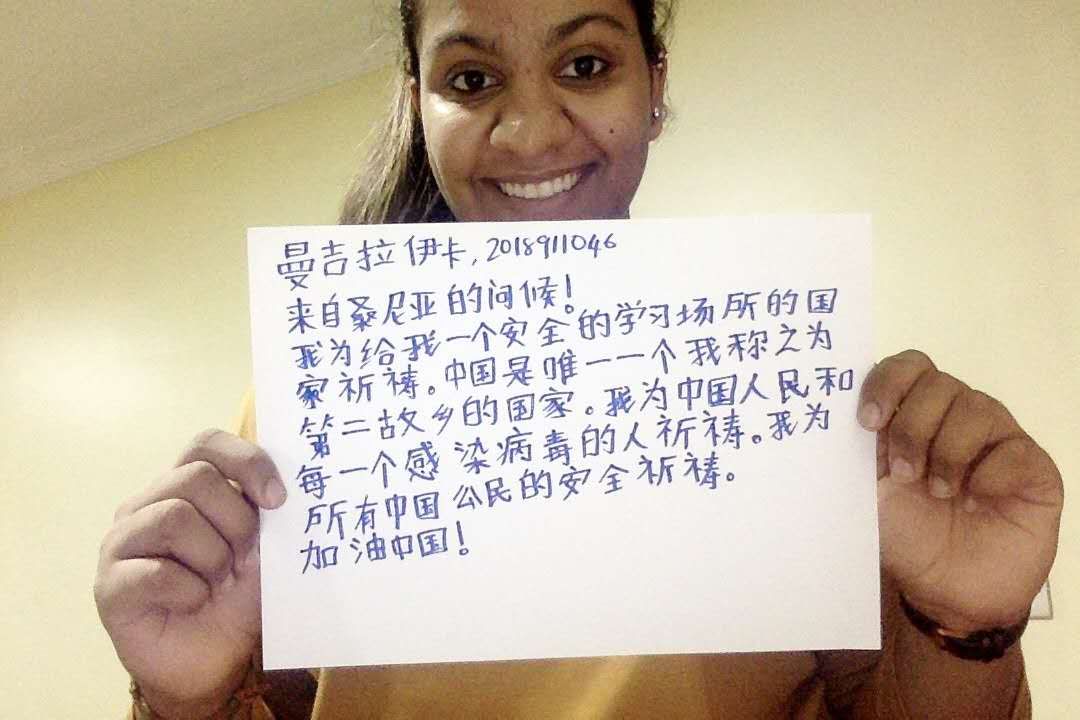 曼吉拉伊卡,2018911046
来自桑尼亚的问候!
我为给我一个安全的学习场所的国
家祈祷。中国是唯一一个我称之为
第二故乡的国家。我为中国人民和
每一个感染病毒的人祈祷。我为
所有中国公民的安全祈祷。
加油中国!